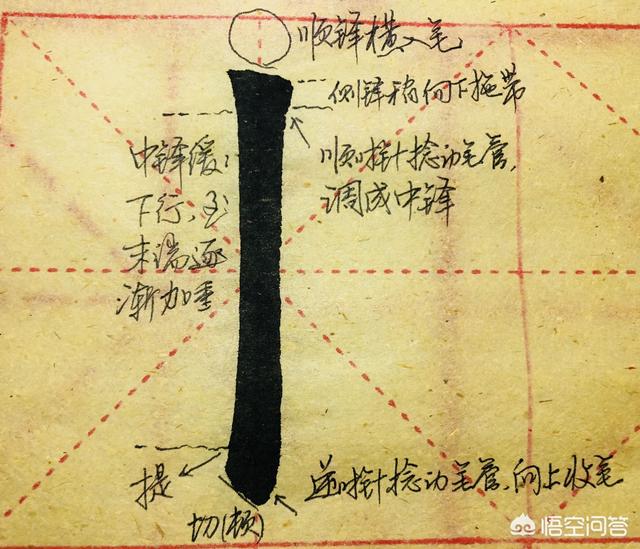 顺锋横入笔
侧锋稍向下拖带
顺时针捻动毛管,
调成中锋
中锋缓
下行,至
末端逐
渐加重
提
切(顿)
逆时针捻动毛管,向上收笔
悟空问答